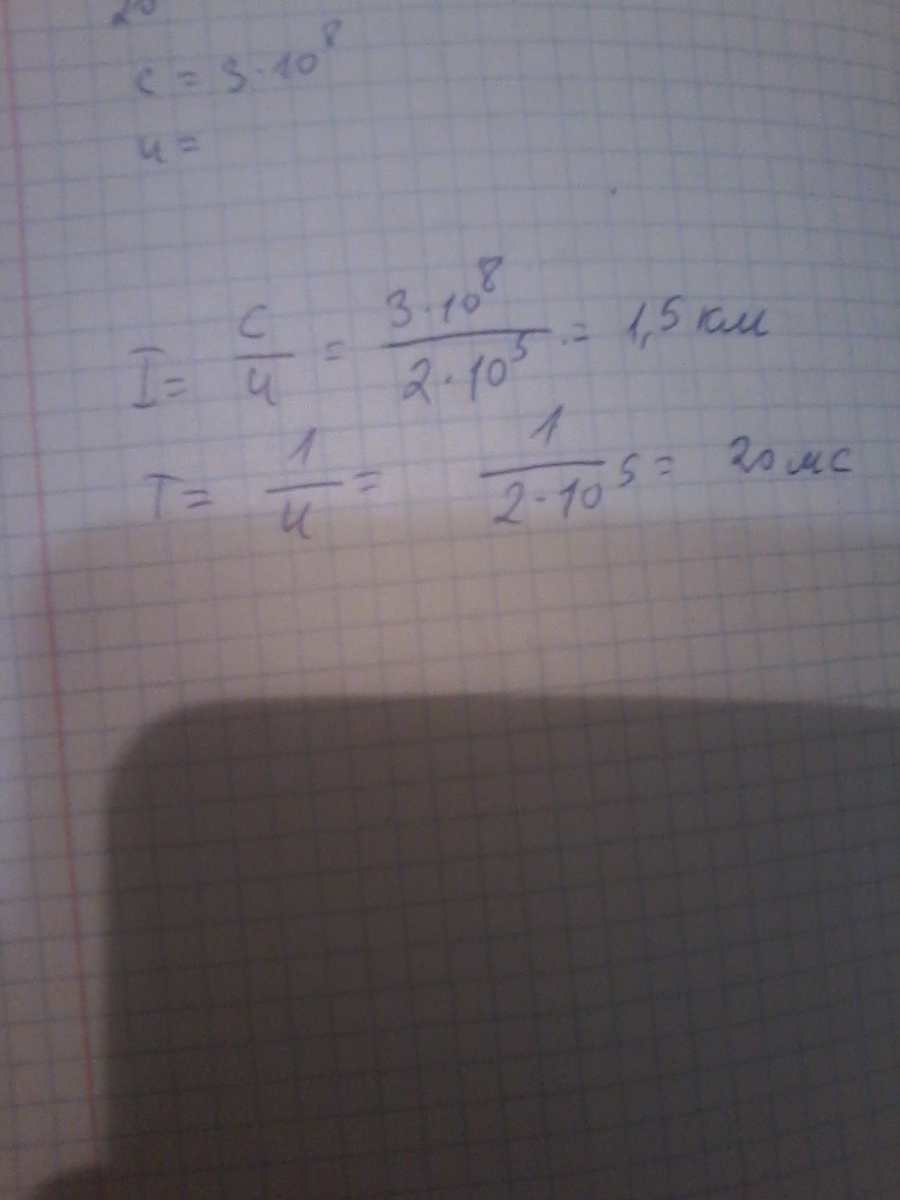 20
c = 3·10⁸
ч =
I = c/ч = 3·10⁸/2·10⁵ = 1,5 км
T = 1/ч = 1/2·10⁵ = 20 мс